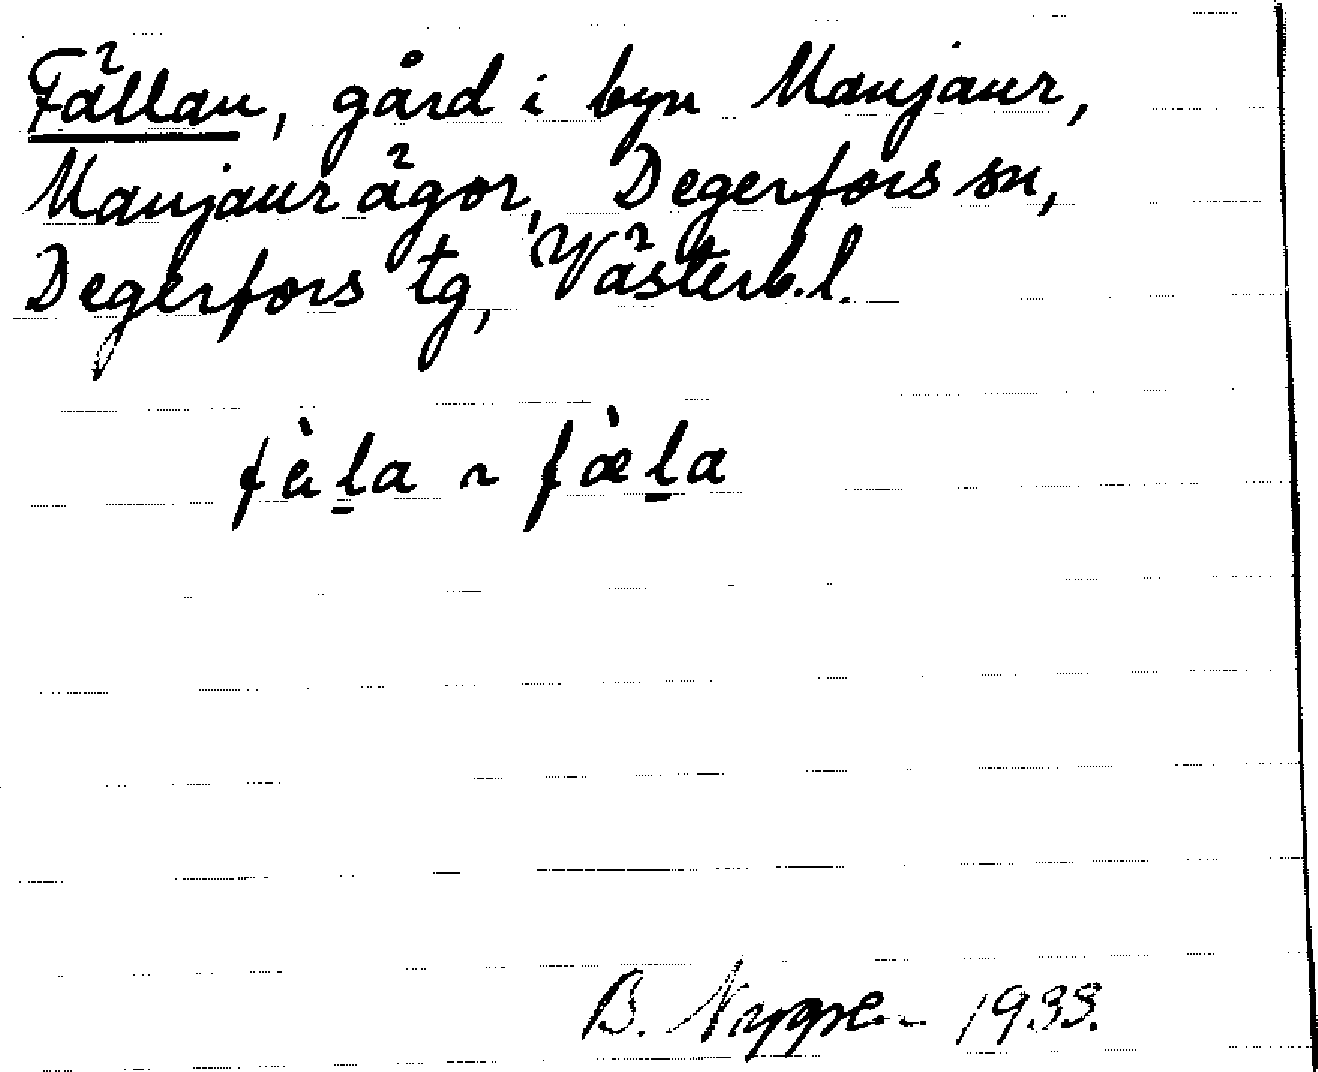 Fällan, gård i byn Manjaur,
Manjaur ägor, Degerfors sn,
Degerfors tg, Västerb.l.
fàl̲a ~ fæ̀l̲a
B. Nygren 1933.